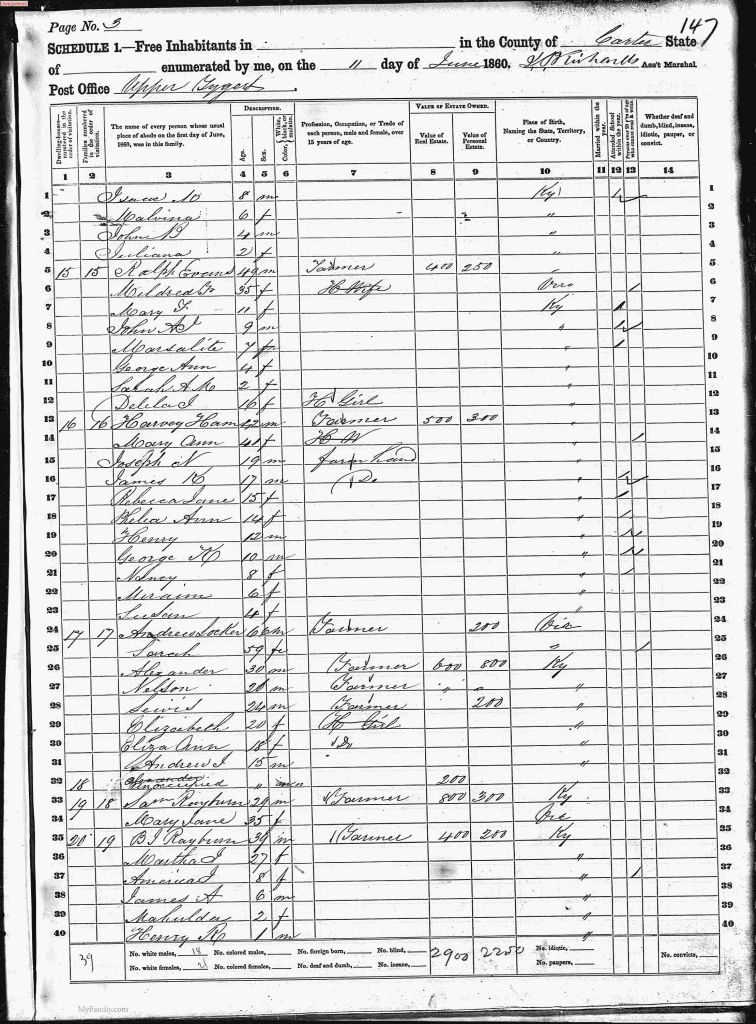 Page No. 3
147
SCHEDULE 1.—Free Inhabitants in in the County of Carter State
of enumerated by me, on the 11 day of June 1860. Ass't Marshal.
Post Office Upper Tygert
DESCRIPTION. VALUE OF ESTATE OWNED.
Dwelling-houses—numbered in the order of visitation. Families numbered in the order of visitation. The name of every person whose usual place of abode on the first day of June, 1860, was in this family. Age. Sex. Color, White, black, or mulatto. Profession, Occupation, or Trade of each person, male and female, over 15 years of age. Value of Real Estate. Value of Personal Estate. Place of Birth, Naming the State, Territory, or Country. Married within the year. Attended School within the year. Persons over 20 y'rs of age who cannot read & write. Whether deaf and dumb, blind, insane, idiotic, pauper, or convict.
1 2 3 4 5 6 7 8 9 10 11 12 13 14
1 Isaac M 8 m Ky 1
2 Malvina 6 f " 2
3 John B 4 m " 3
4 Juliana 2 f " 4
5 15 15 Ralph Evans 49 m Farmer 400 250 " 5
6 Mildred 35 f H Wife 6
7 Mary F 11 f Ky 7
8 John A J 9 m " 8
9 Marsalite 7 " 9
10 George Ann 4 f " 10
11 Sarah A M 2 f " 11
12 Delila J 16 f H Girl " 12
13 16 16 Harvey Ham 42 m Farmer 500 300 " 13
14 Mary Ann 41 f H W " 14
15 Joseph N 19 m farm hand " 15
16 James K 17 m Do " 16
17 Rebecca Jane 15 f " 17
18 Ann 14 f " 18
19 Henry 12 m " 19
20 George H 10 m " 20
21 Nancy 8 f " 21
22 Miraim 6 f " 22
23 Susan 4 f " 23
24 17 17 Andrew Locker 66 m Farmer 200 24
25 Sarah 59 " 25
26 Alexander 30 m Farmer 600 800 Ky 26
27 Nelson 26 m Farmer " " " 27
28 Lewis 24 m Farmer 200 " 28
29 Elizabeth 20 f H Girl " 29
30 Eliza Ann 18 f Do " 30
31 Andrew J 15 m " 31
32 18 Unoccupied " 200 32
33 19 18 Sam Rayburn 29 m Farmer 800 300 Ky 33
34 Mary Jane 35 f 34
35 20 19 B J Rayburn 39 m Farmer 400 200 Ky 35
36 Martha J 27 f " 36
37 America J 8 f " 37
38 James A 6 m " 38
39 Mahulda 2 f " 39
40 Henry R 1 m " 40
39 No. white males, 18 No. colored males, No. foreign born, No. blind, 2900 2250 No. idiotic, No. convicts,
No. white females, 21 No. colored females, No. deaf and dumb, No. insane, No. paupers,
MyFamily.com